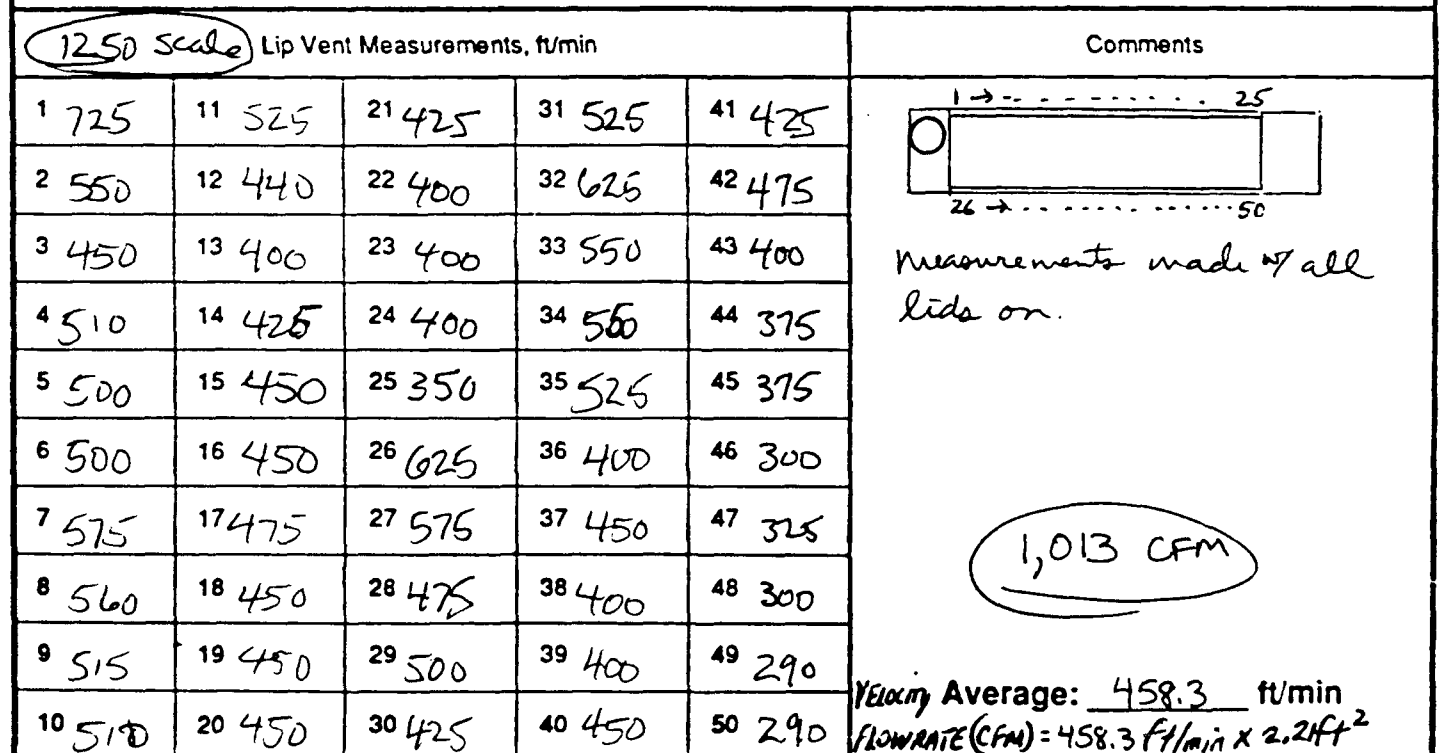 1250 Scale Lip Vent Measurements, ft/min Comments
1 725 11 525 21 425 31 525 41 425
2 550 12 440 22 400 32 625 42 475
3 450 13 400 23 400 33 550 43 400
4 510 14 425 24 400 34 550 44 375
5 500 15 450 25 350 35 525 45 375
6 500 16 450 26 625 36 400 46 300
7 575 17 475 27 575 37 450 47 325
8 560 18 450 28 475 38 400 48 300
9 515 19 450 29 500 39 400 49 290
10 510 20 450 30 425 40 450 50 290
1 → 25
26 → 50
measurements made w/ all
lids on.
1,013 CFM
VELOCITY Average: 458.3 ft/min
FLOWRATE (CFM) = 458.3 ft/min x 2.21ft²